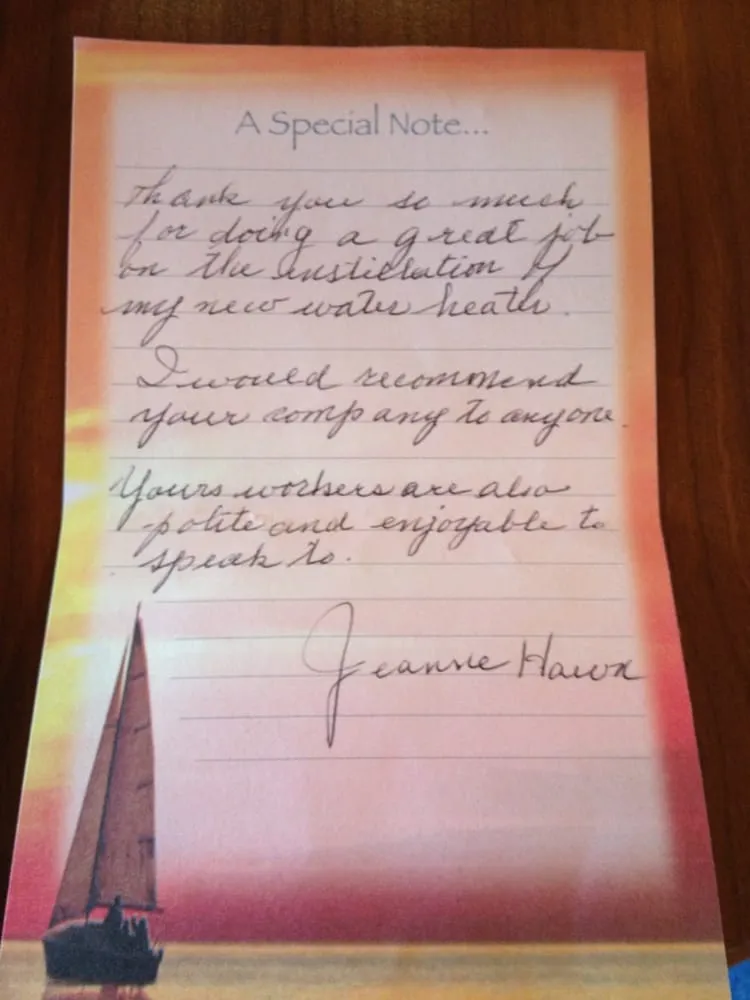 A Special Note...
Thank you so much
for doing a great job
on the instillation of
my new water heater.
I would recommend
your company to anyone.
Yours workers are also
polite and enjoyable to
speak to.
Jeanne Hawn